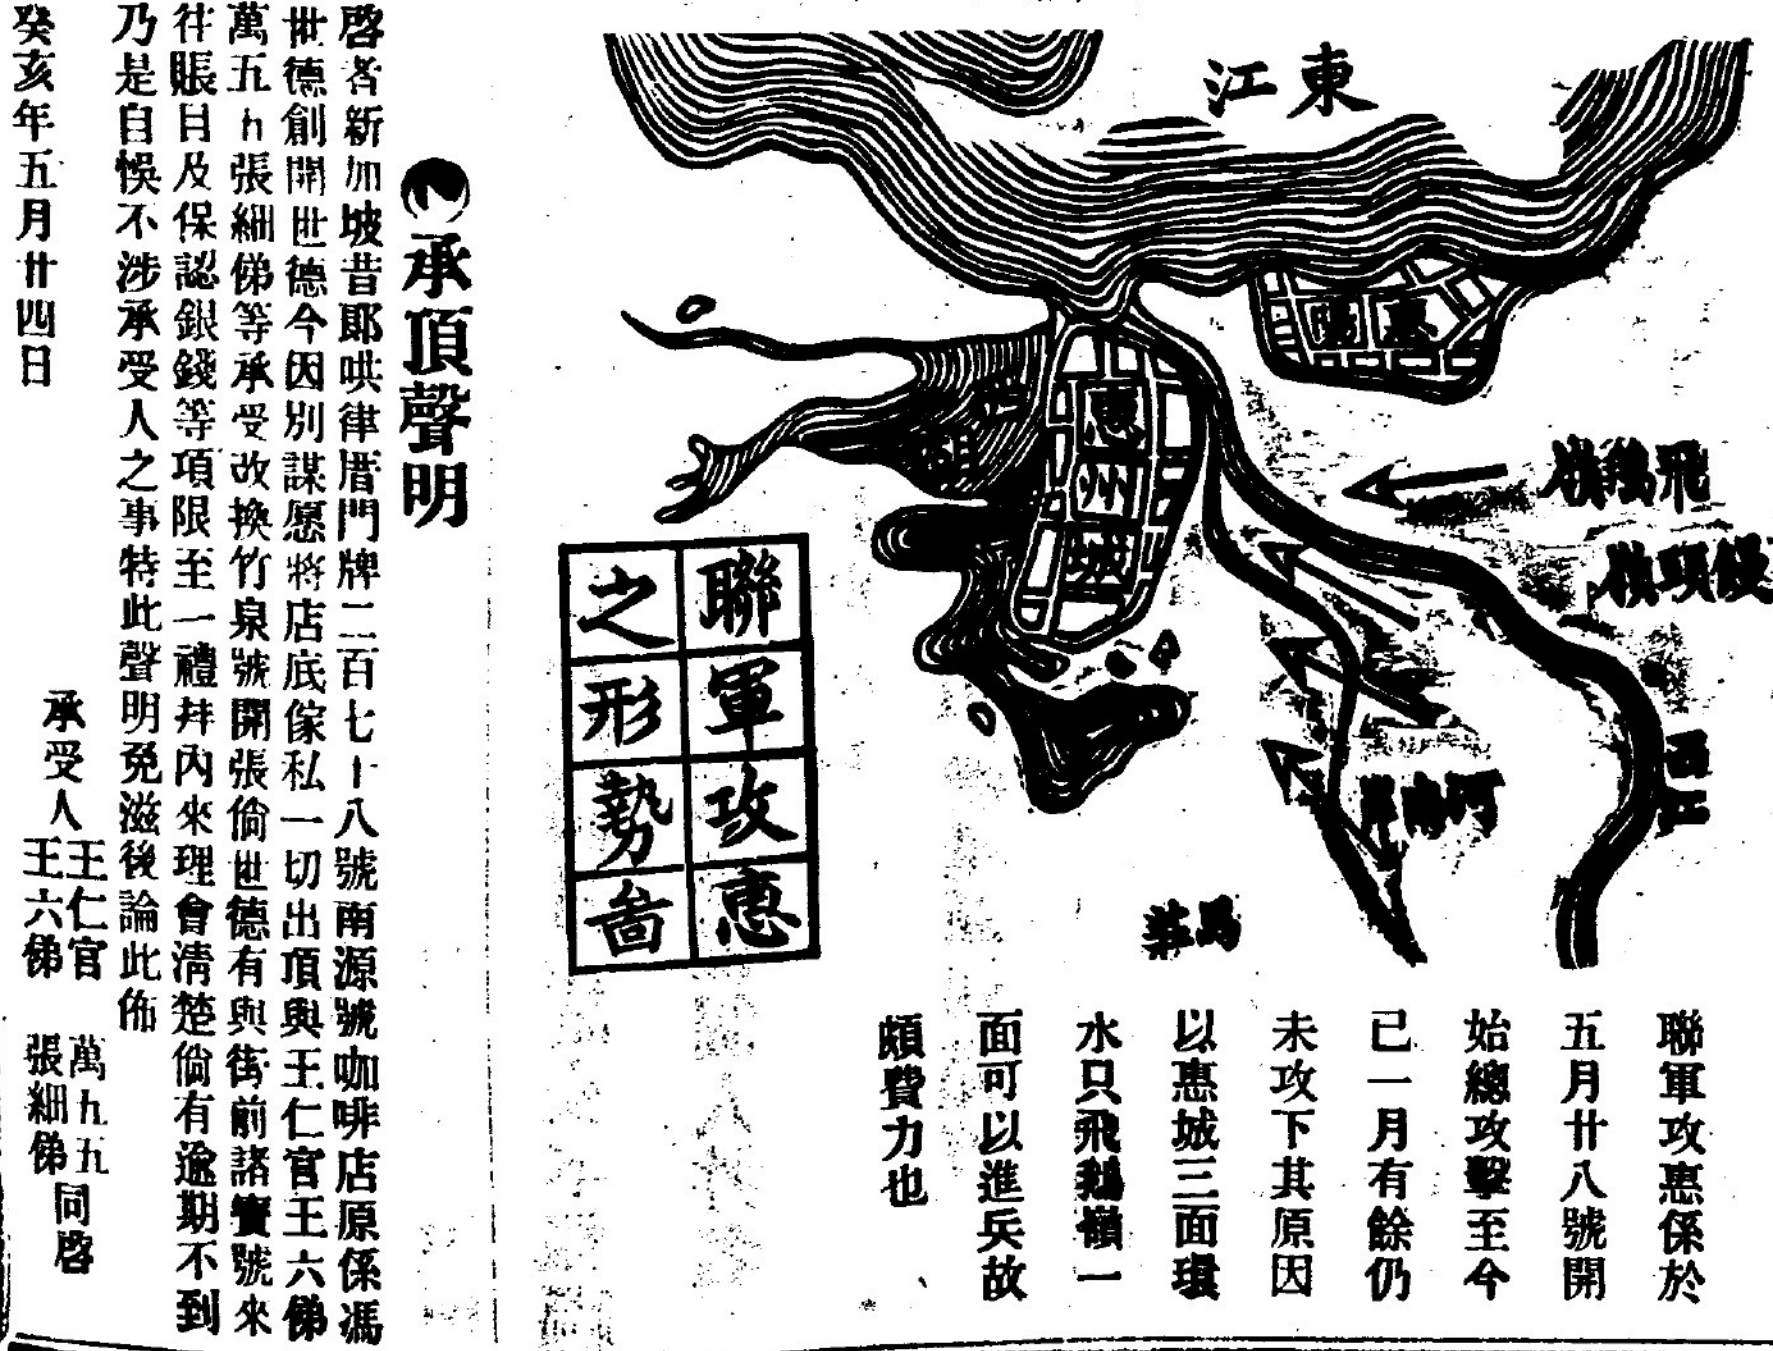 東江
惠陽
惠州城
飛鵝嶺
饅頭嶺
西江
河南岸
馬莊
聯軍攻惠
之形勢啚
聯軍攻惠係於
五月廿八號開
始總攻擊至今
已一月有餘仍
未攻下其原因
以惠城三面環
水只飛鵝嶺一
面可以進兵故
頗費力也
承頂聲明
啓者新加坡昔郎哄律厝門牌二百七十八號南源號咖啡店原係馮
世德創開世德今因別謀愿將店底傢私一切出頂與王仁官王六俤
萬五九張細俤等承受改換竹泉號開張倘世德有與街前諸寶號來
往賬目及保認銀錢等項限至一禮拜內來理會清楚倘有逾期不到
乃是自悞不涉承受人之事特此聲明免滋後論此佈
承受人
王仁官 萬九五
王六俤 張細俤
同啓
癸亥年五月廿四日